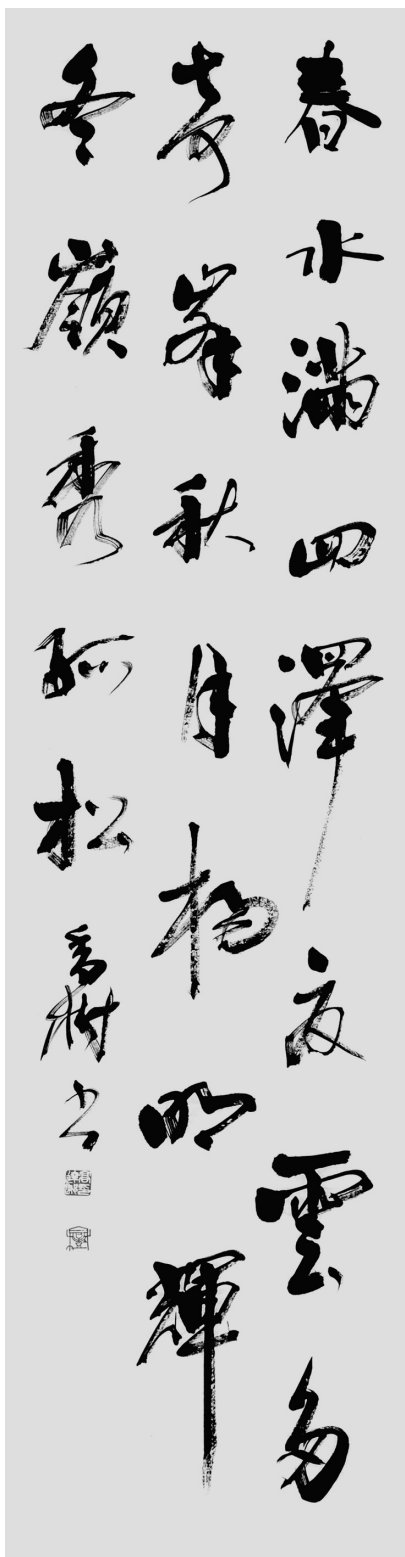 春水滿四澤夏雲多
奇峯秋月揚明輝
冬嶺秀孤松 樹书